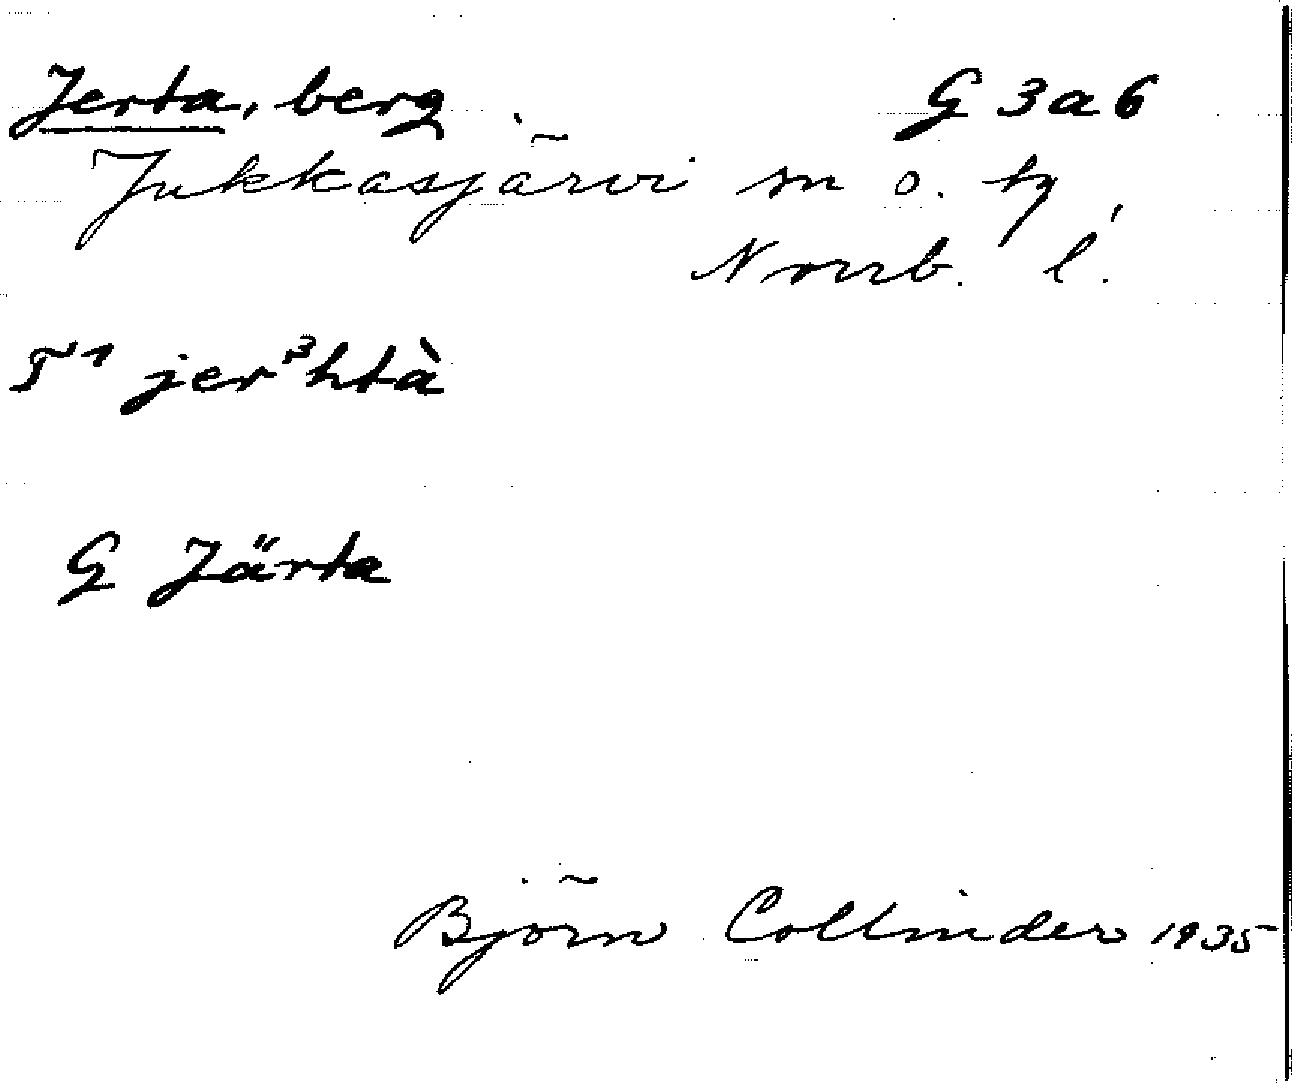 Jerta, berg G 3a6
Jukkasjärvi sn o. tg
Norrb. l.
T¹ jer³htà
G Järta
Björn Collinder 1935